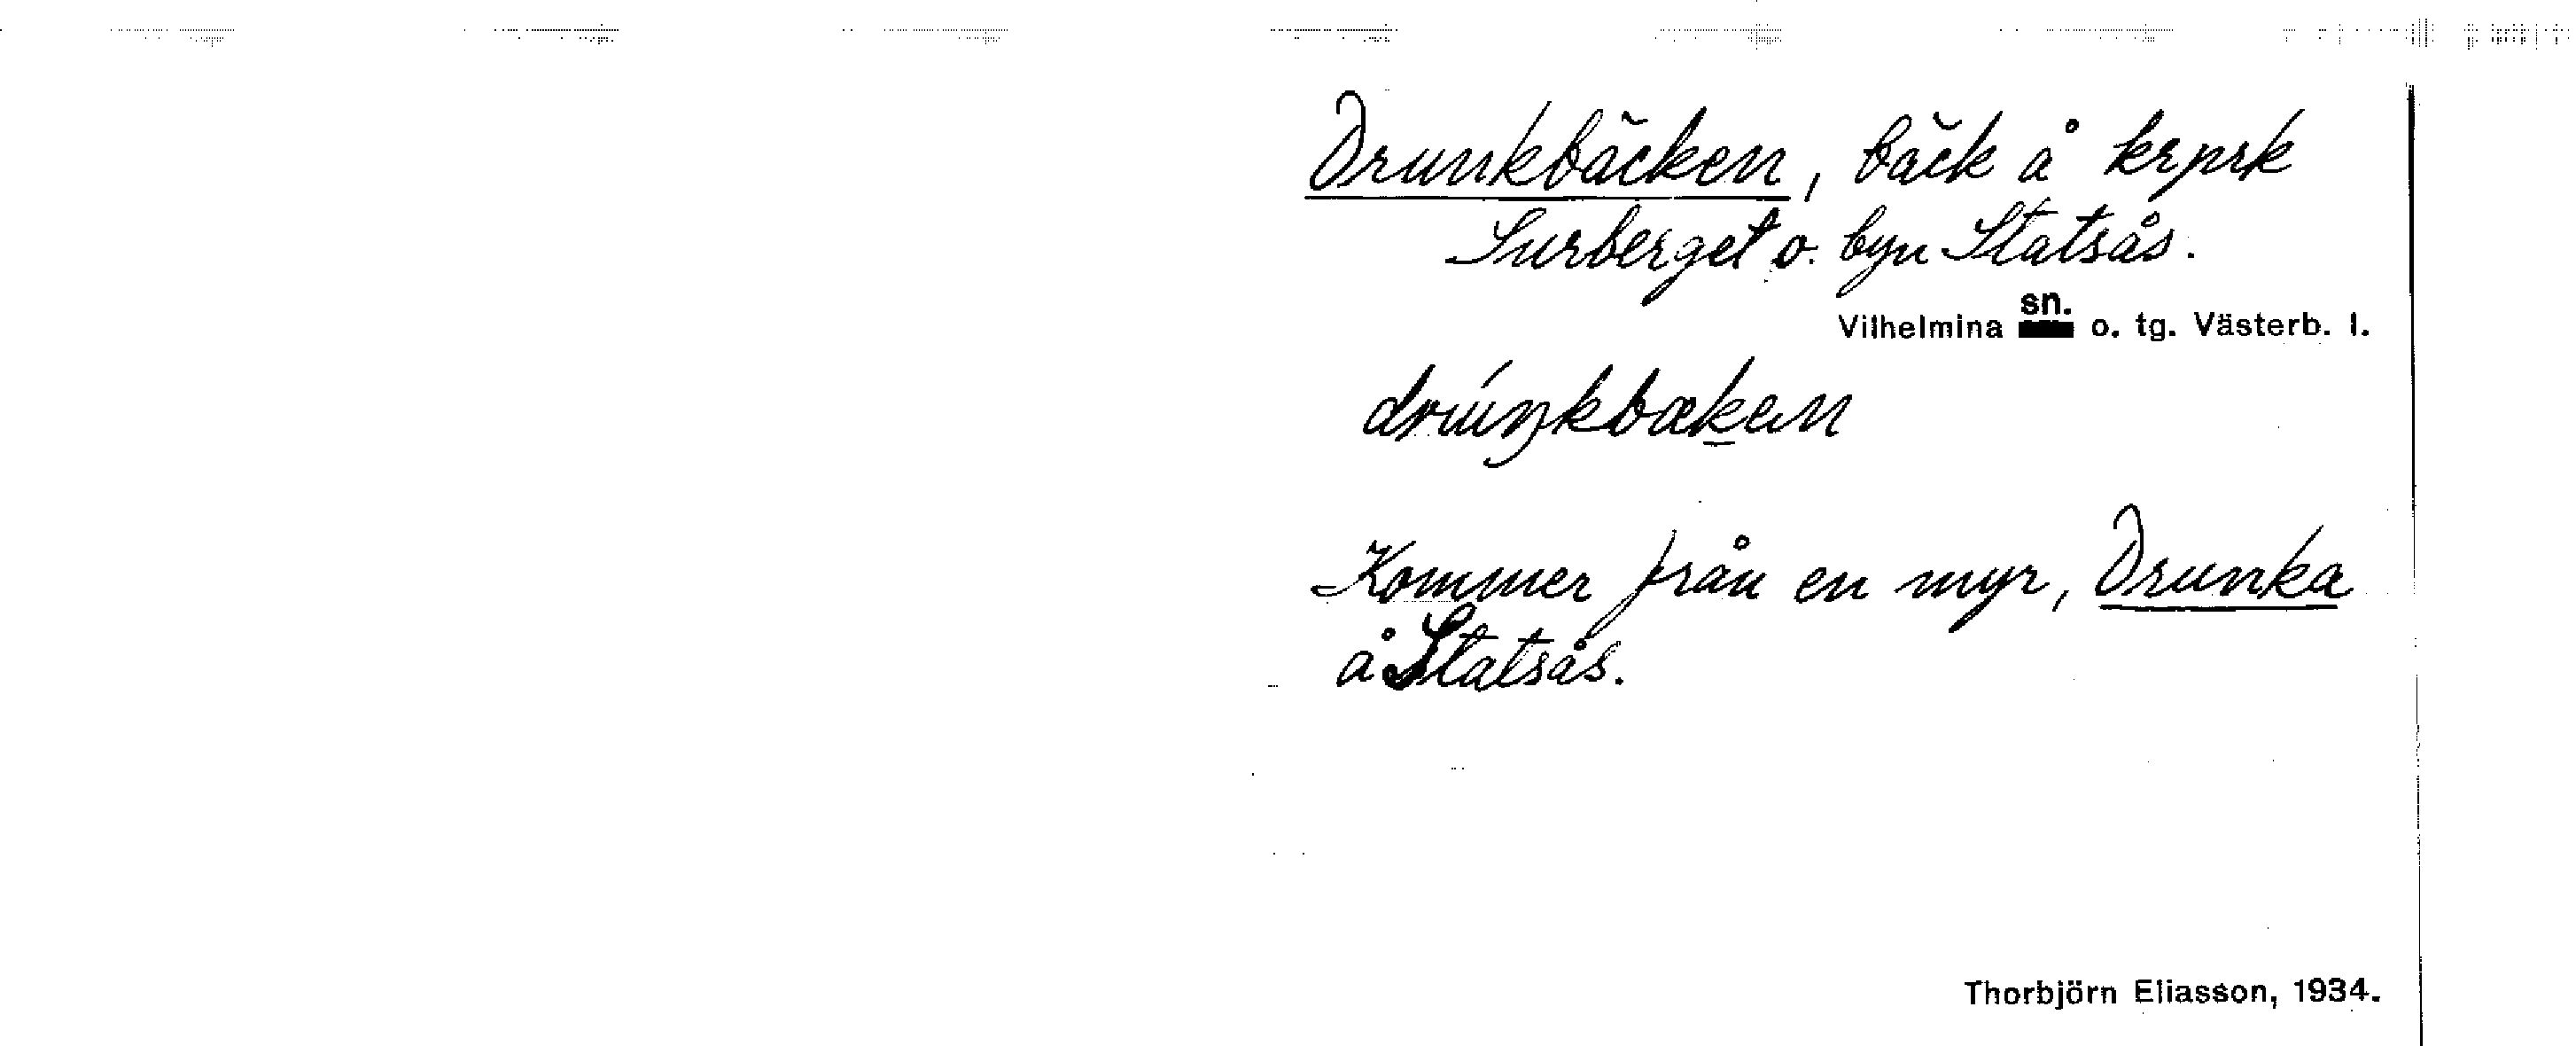 Drunkbäcken, bäck å krpsk
Surberget o. byn Statsås.
Vilhelmina sn. o. tg. Västerb. l.
drúŋkbækæn
Kommer från en myr, Drunka
å Statsås.
Thorbjörn Eliasson, 1934.